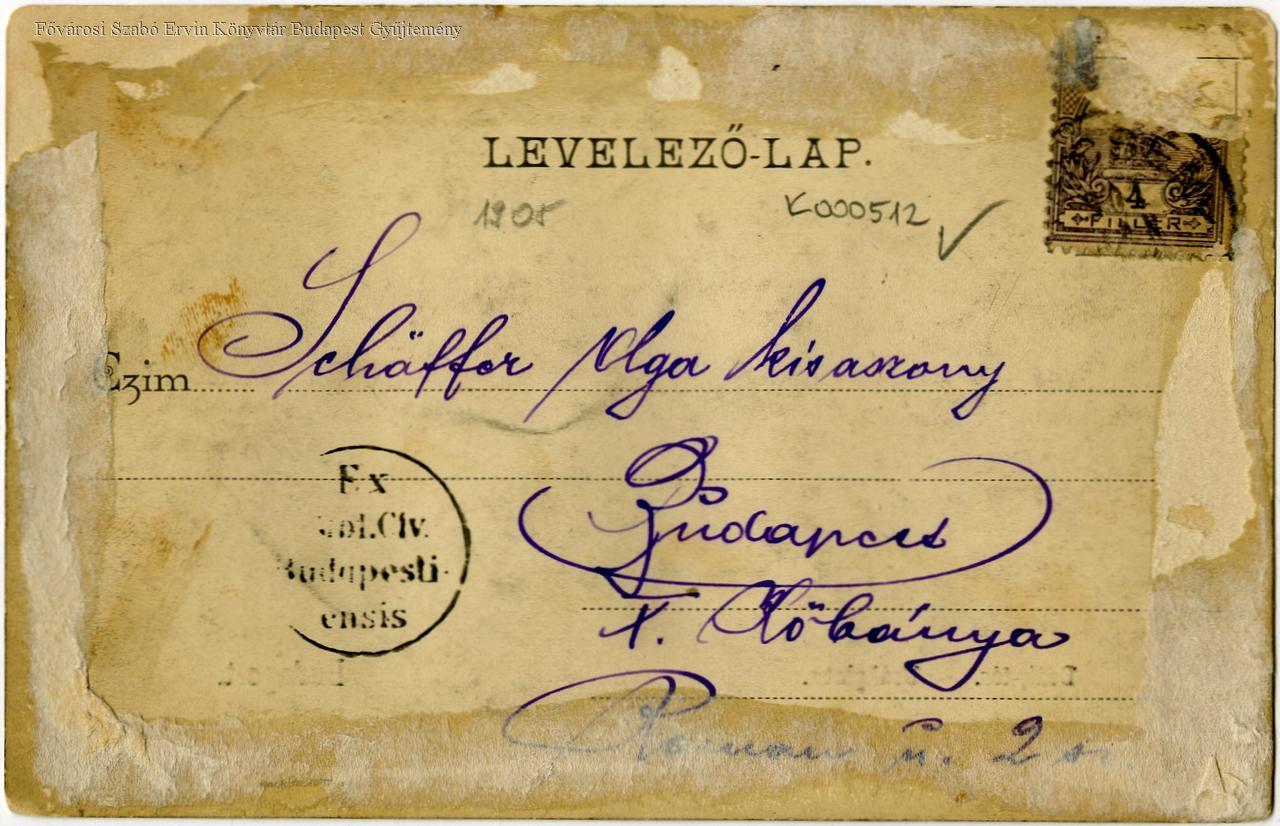 Fővárosi Szabó Ervin Könyvtár Budapest Gyűjtemény
LEVELEZŐ-LAP.
1905
K000512
4
FILLÉR
Czim Schäffer Olga kisaszony
Ex
Civ.
Budapesti-
ensis
Budapest
X. Kőbánya
ú. 2 sz.